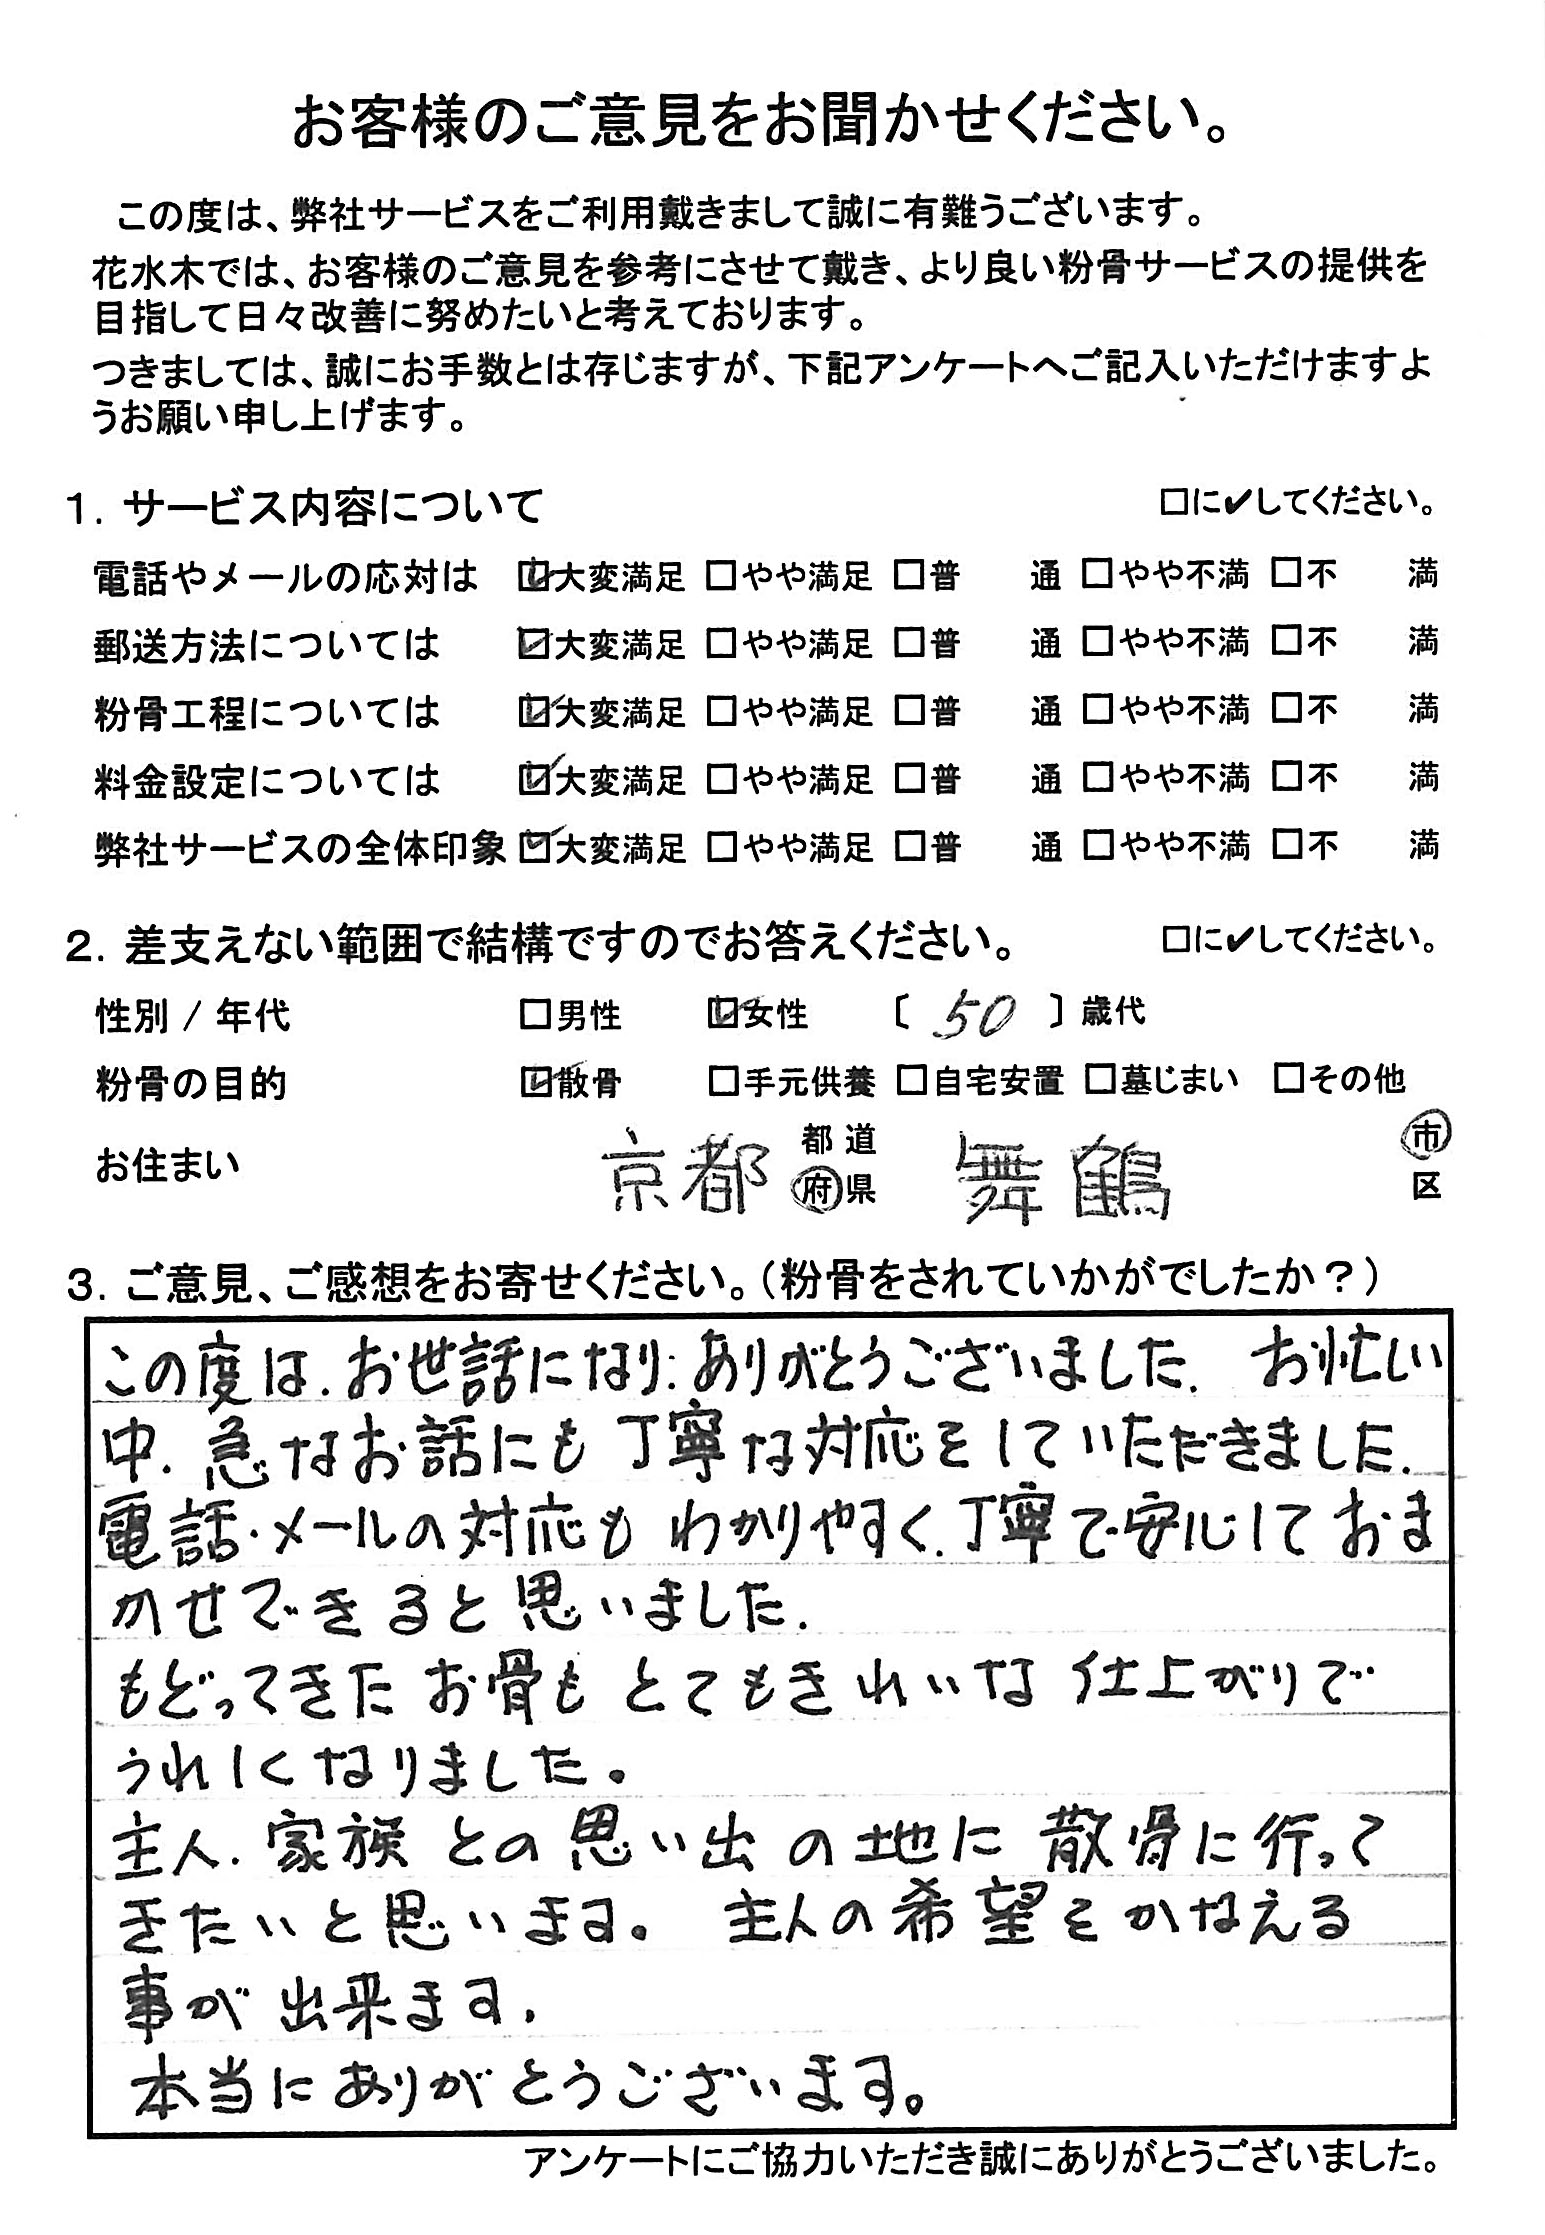 お客様のご意見をお聞かせください。
この度は、弊社サービスをご利用戴きまして誠に有難うございます。
花水木では、お客様のご意見を参考にさせて戴き、より良い粉骨サービスの提供を
目指して日々改善に努めたいと考えております。
つきましては、誠にお手数とは存じますが、下記アンケートへご記入いただけますよ
うお願い申し上げます。
1. サービス内容について □に✔してください。
電話やメールの応対は ☑大変満足 □やや満足 □普 通 □やや不満 □不 満
郵送方法については ☑大変満足 □やや満足 □普 通 □やや不満 □不 満
粉骨工程については ☑大変満足 □やや満足 □普 通 □やや不満 □不 満
料金設定については ☑大変満足 □やや満足 □普 通 □やや不満 □不 満
弊社サービスの全体印象 ☑大変満足 □やや満足 □普 通 □やや不満 □不 満
2. 差支えない範囲で結構ですのでお答えください。 □に✔してください。
性別 / 年代 □男性 ☑女性 〔 50 〕歳代
粉骨の目的 ☑散骨 □手元供養 □自宅安置 □墓じまい □その他
お住まい 京都 都道府県 舞鶴 市区
3. ご意見、ご感想をお寄せください。（粉骨をされていかがでしたか？）
この度は、お世話になり、ありがとうございました。 お忙しい
中、急なお話にも丁寧な対応をしていただきました。
電話・メールの対応もわかりやすく、丁寧で安心しておま
かせできると思いました。
もどってきたお骨もとてもきれいな仕上がりで
うれしくなりました。
主人、家族との思い出の地に散骨に行って
きたいと思います。 主人の希望をかなえる
事が出来ます。
本当にありがとうございます。
アンケートにご協力いただき誠にありがとうございました。